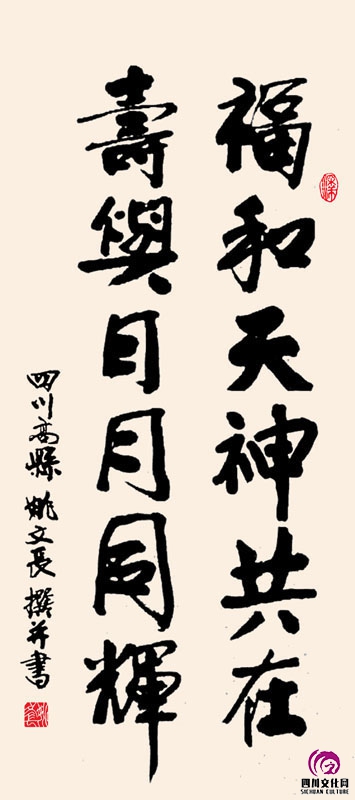 福和天神共在
壽與日月同輝
四川高縣姚文長撰并書
四川文化网
SICHUAN CULTURE